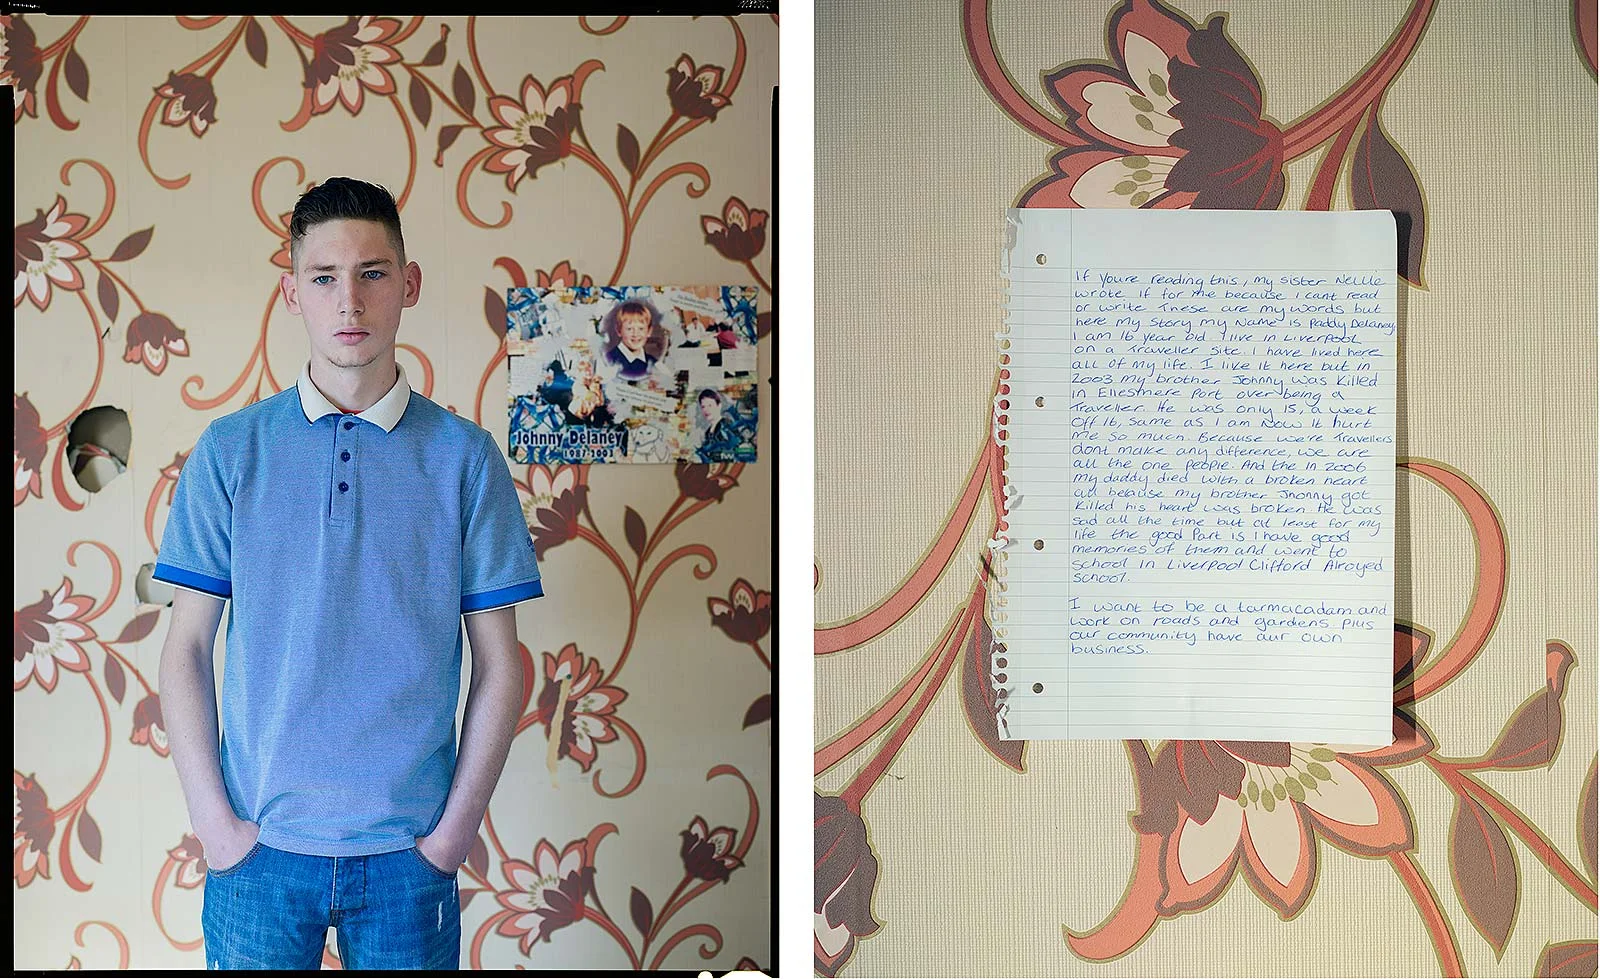 Johnny Delaney
1987-2003
If youre reading this, my sister Nellie
wrote it for me because I cant read
or write These are my words but
here my story my Name is Paddy Delaney
I am 16 year old I live in Liverpool
on a Traveller site. I have lived here
all of my life. I like it here but in
2003 my brother Johnny was killed
in Ellesmere Port over being a
Traveller. He was only 15, a week
off 16, same as I am Now it hurt
me so much. Because we're Travellers
dont make any difference, we are
all the one people. And the in 2006
my daddy died with a broken heart
all because my brother Jhonny got
killed his heart was broken He was
sad all the time but at least for my
life the good part is I have good
memories of them and went to
school in Liverpool Clifford Alroyed
school.
I want to be a tarmacadam and
work on roads and gardens plus
our community have our own
business.